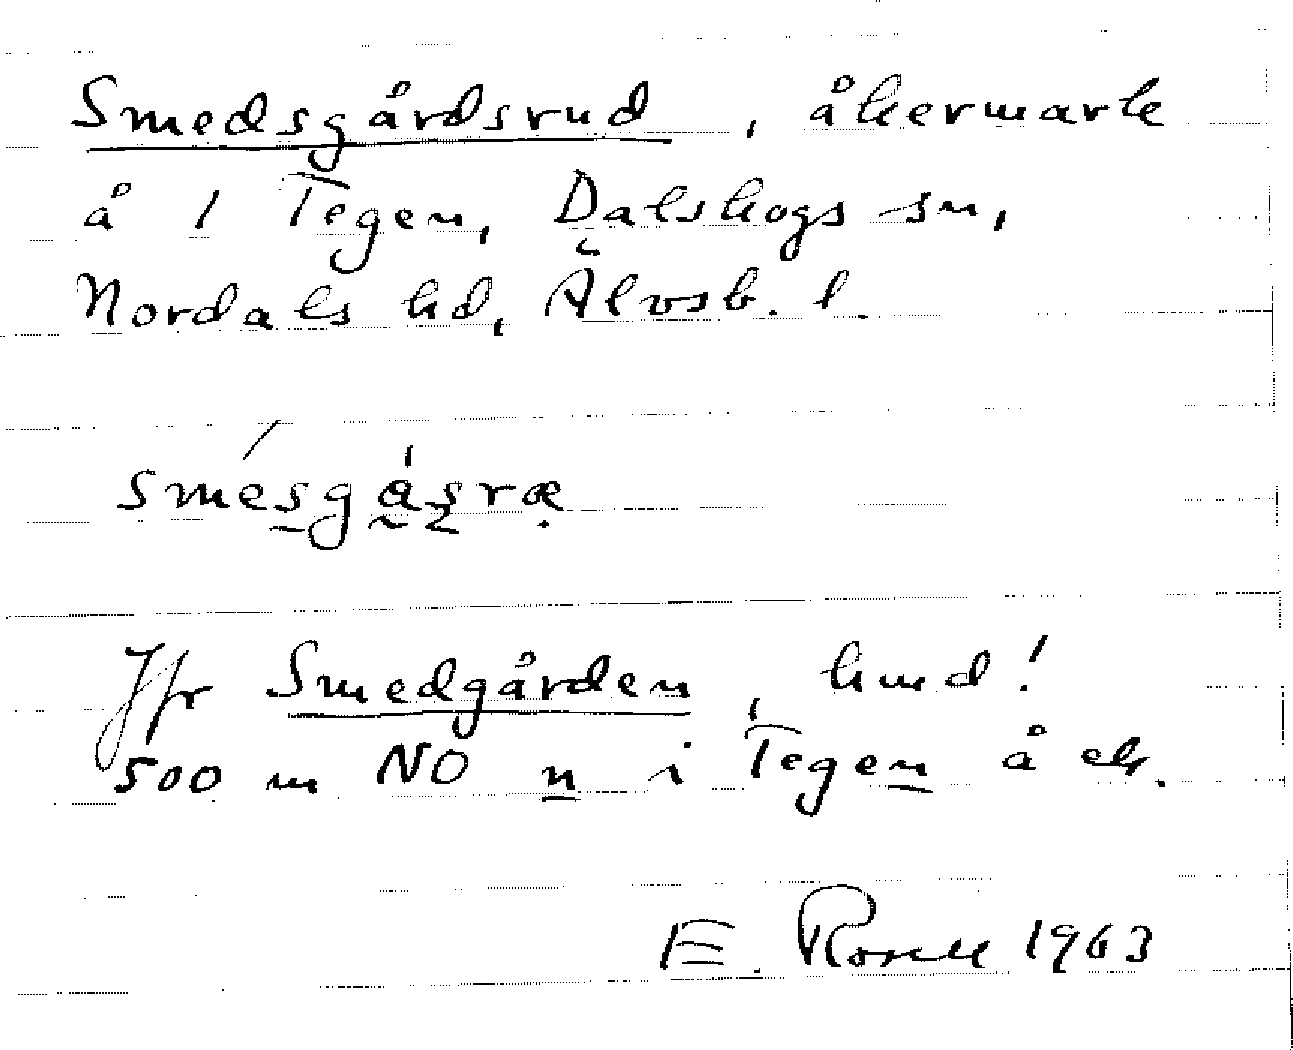 Smedsgårdsrud, åkermark
å 1 Tegen, Dalskogs sn,
Nordals hd, Älvsb. l.
smésgásræ
Jfr Smedgården, hmd!
500 m NO n i Tegen å ek.
E. Rosell 1963